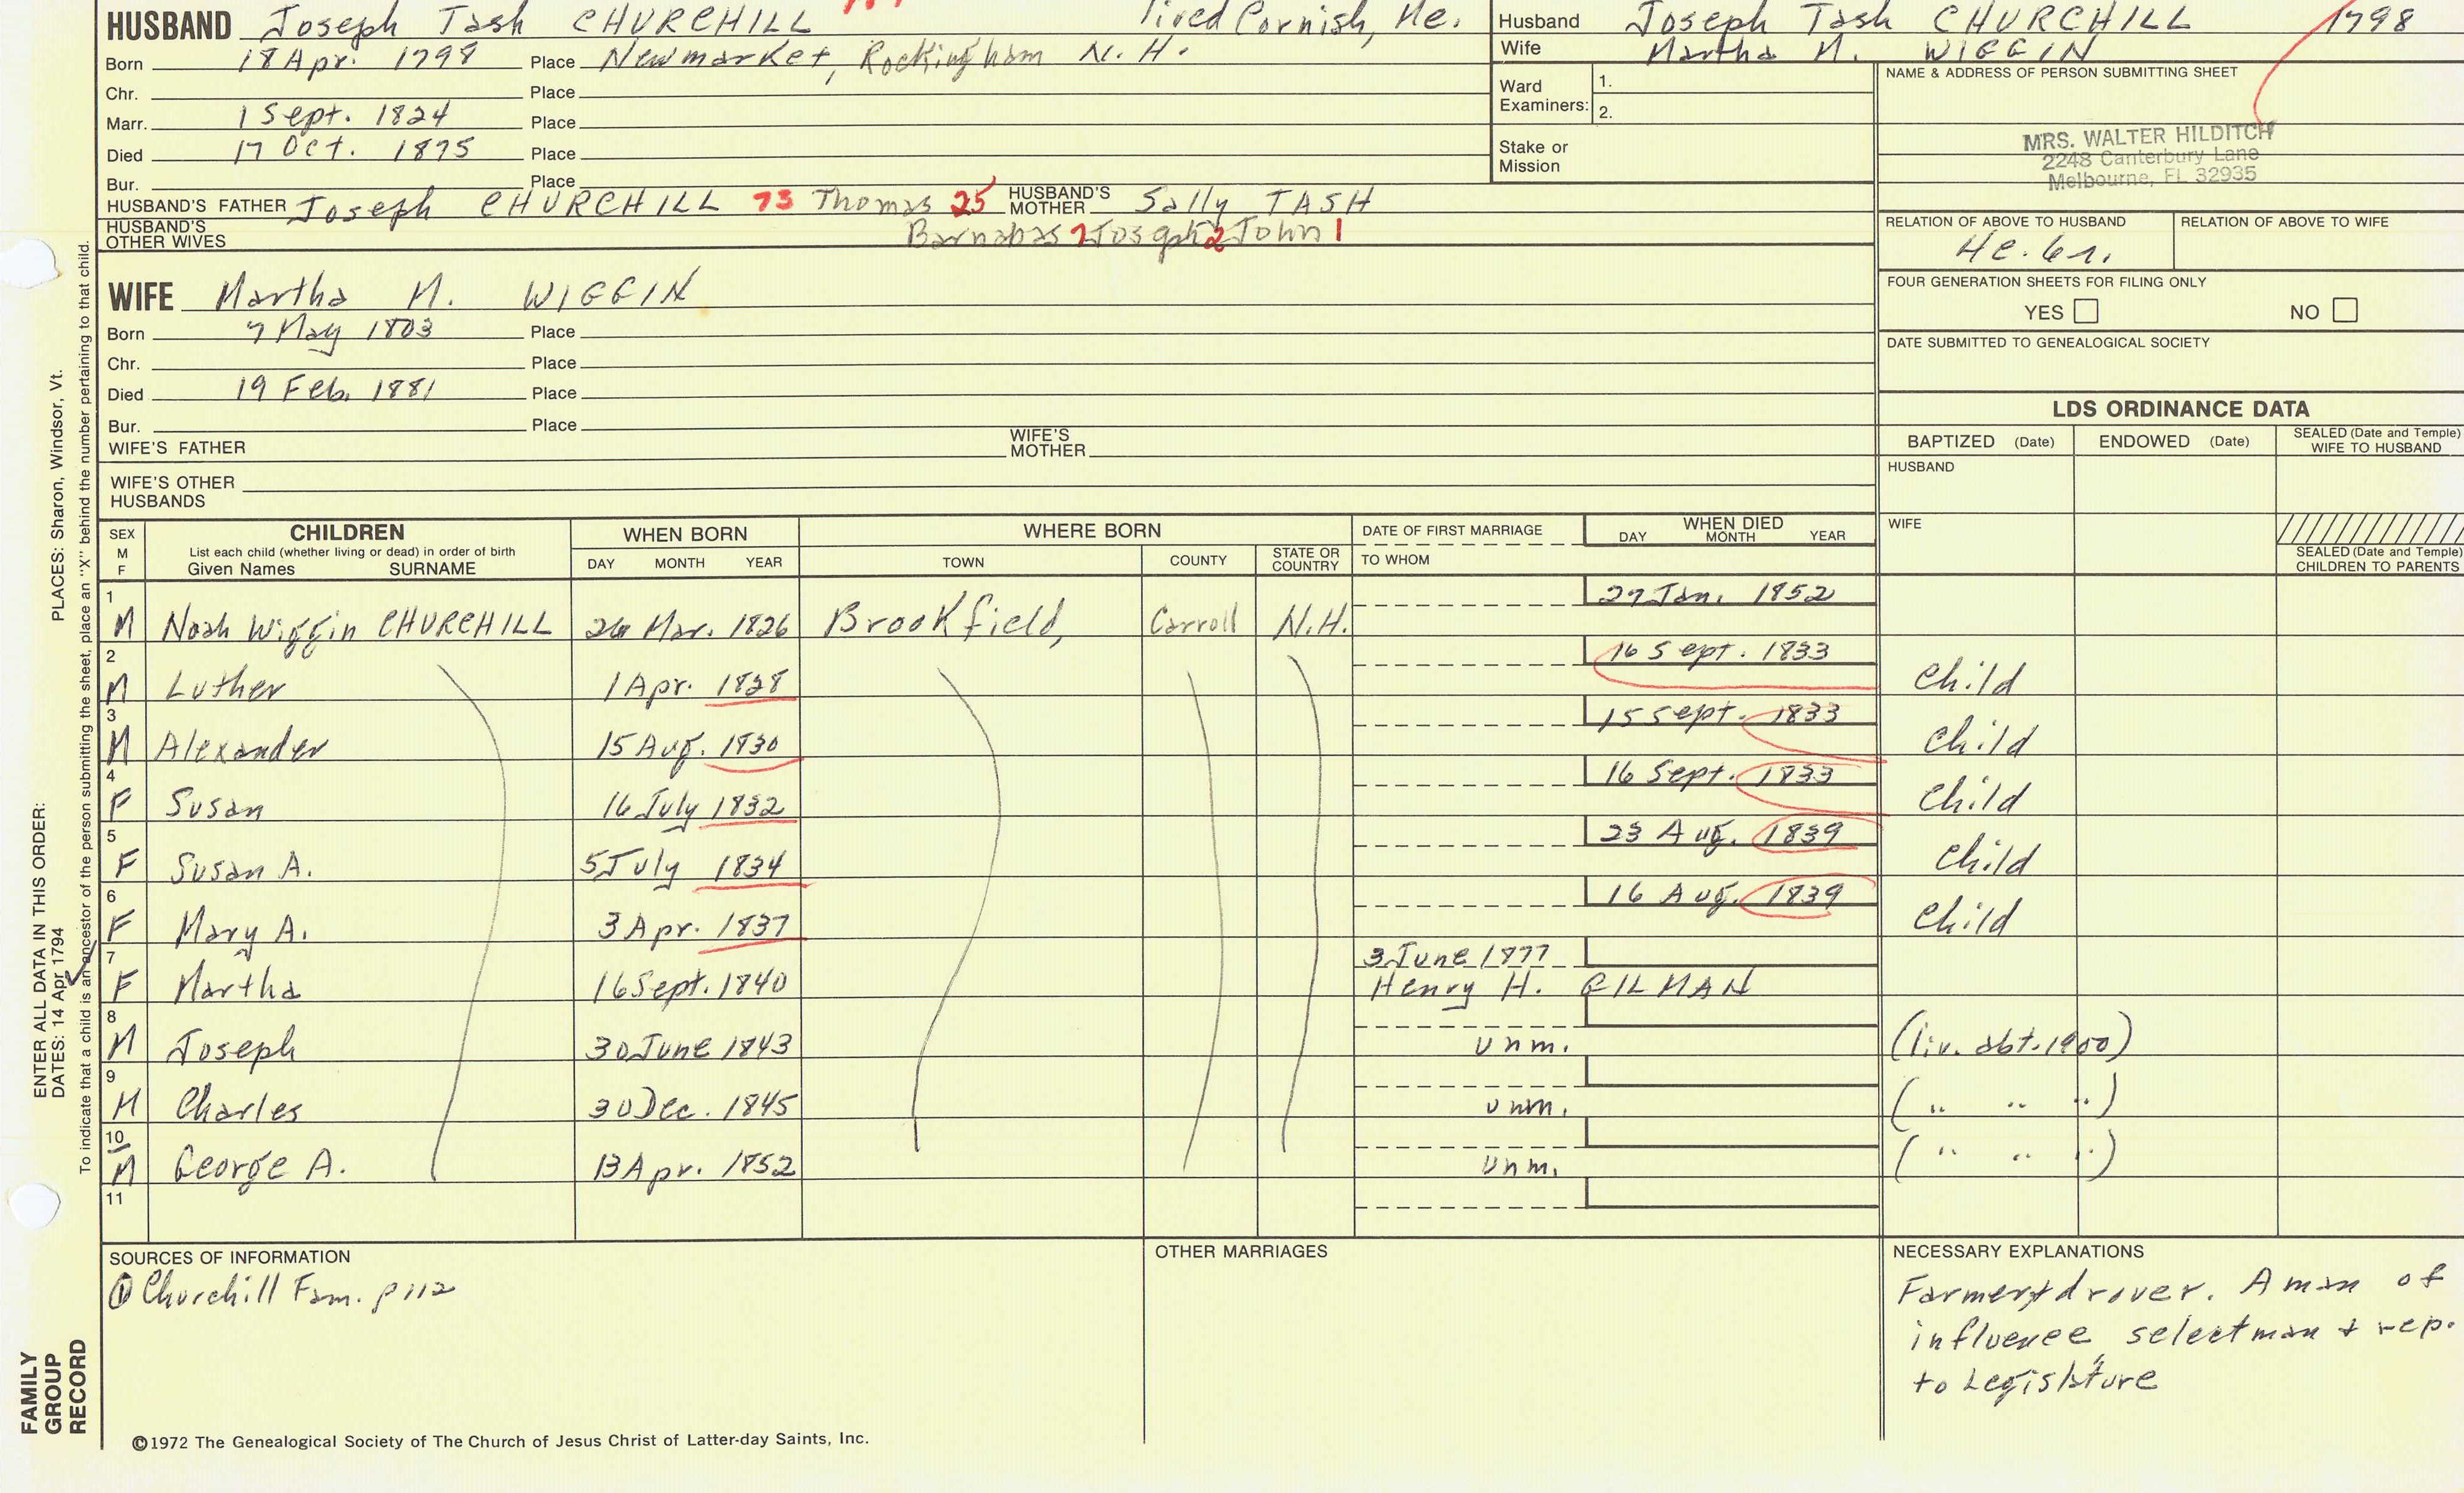 HUSBAND Joseph Tash CHURCHILL lived Cornish, Me.
Born 18 Apr. 1798 Place Newmarket, Rockingham N.H.
Chr. Place
Marr. 1 Sept. 1824 Place
Died 17 Oct. 1875 Place
Bur. Place
HUSBAND'S FATHER Joseph CHURCHILL 73 Thomas 25 HUSBAND'S MOTHER Sally TASH
HUSBAND'S OTHER WIVES Barnabas 7 Joseph 2 John 1
Husband Joseph Tash CHURCHILL 1798
Wife Martha M. WIGGIN
Ward Examiners: 1.
2.
Stake or Mission
NAME & ADDRESS OF PERSON SUBMITTING SHEET
MRS. WALTER HILDITCH
2248 Canterbury Lane
Melbourne, FL 32935
RELATION OF ABOVE TO HUSBAND RELATION OF ABOVE TO WIFE
FOUR GENERATION SHEETS FOR FILING ONLY
YES NO
DATE SUBMITTED TO GENEALOGICAL SOCIETY
WIFE Martha M. WIGGIN
Born 7 May 1803 Place
Chr. Place
Died 19 Feb. 1881 Place
Bur. Place
WIFE'S FATHER WIFE'S MOTHER
WIFE'S OTHER HUSBANDS
LDS ORDINANCE DATA
BAPTIZED (Date) ENDOWED (Date) SEALED (Date and Temple) WIFE TO HUSBAND
HUSBAND
WIFE
SEALED (Date and Temple) CHILDREN TO PARENTS
SEX M F CHILDREN List each child (whether living or dead) in order of birth Given Names SURNAME
WHEN BORN DAY MONTH YEAR
WHERE BORN TOWN COUNTY STATE OR COUNTRY
DATE OF FIRST MARRIAGE TO WHOM
WHEN DIED DAY MONTH YEAR
1 M Noah Wiggin CHURCHILL Mar. 1826 Brookfield, Carroll N.H. 27 Jan. 1852
2 M Luther 1 Apr. 1828 16 Sept. 1833 Child
3 M Alexander 15 Aug. 1830 15 Sept. 1833 Child
4 F Susan 16 July 1832 16 Sept. 1833 Child
5 F Susan A. 5 July 1834 23 Aug. 1839 Child
6 F Mary A. 3 Apr. 1837 16 Aug. 1839 Child
7 F Martha 16 Sept. 1840 3 June 1877 Henry H. GILMAN
8 M Joseph 30 June 1843 unm. (liv. abt. 1900)
9 M Charles 30 Dec. 1845 unm. (" " ")
10 M George A. 13 Apr. 1852 unm. (" " ")
11
SOURCES OF INFORMATION
① Churchill Fam. p 112
OTHER MARRIAGES
NECESSARY EXPLANATIONS
Farmer + drover. A man of
influence, selectman + rep.
to Legislature
©1972 The Genealogical Society of The Church of Jesus Christ of Latter-day Saints, Inc.
FAMILY GROUP RECORD
ENTER ALL DATA IN THIS ORDER:
DATES: 14 Apr 1794 PLACES: Sharon, Windsor, Vt.
To indicate that a child is an ancestor of the person submitting the sheet, place an "X" behind the number pertaining to that child.